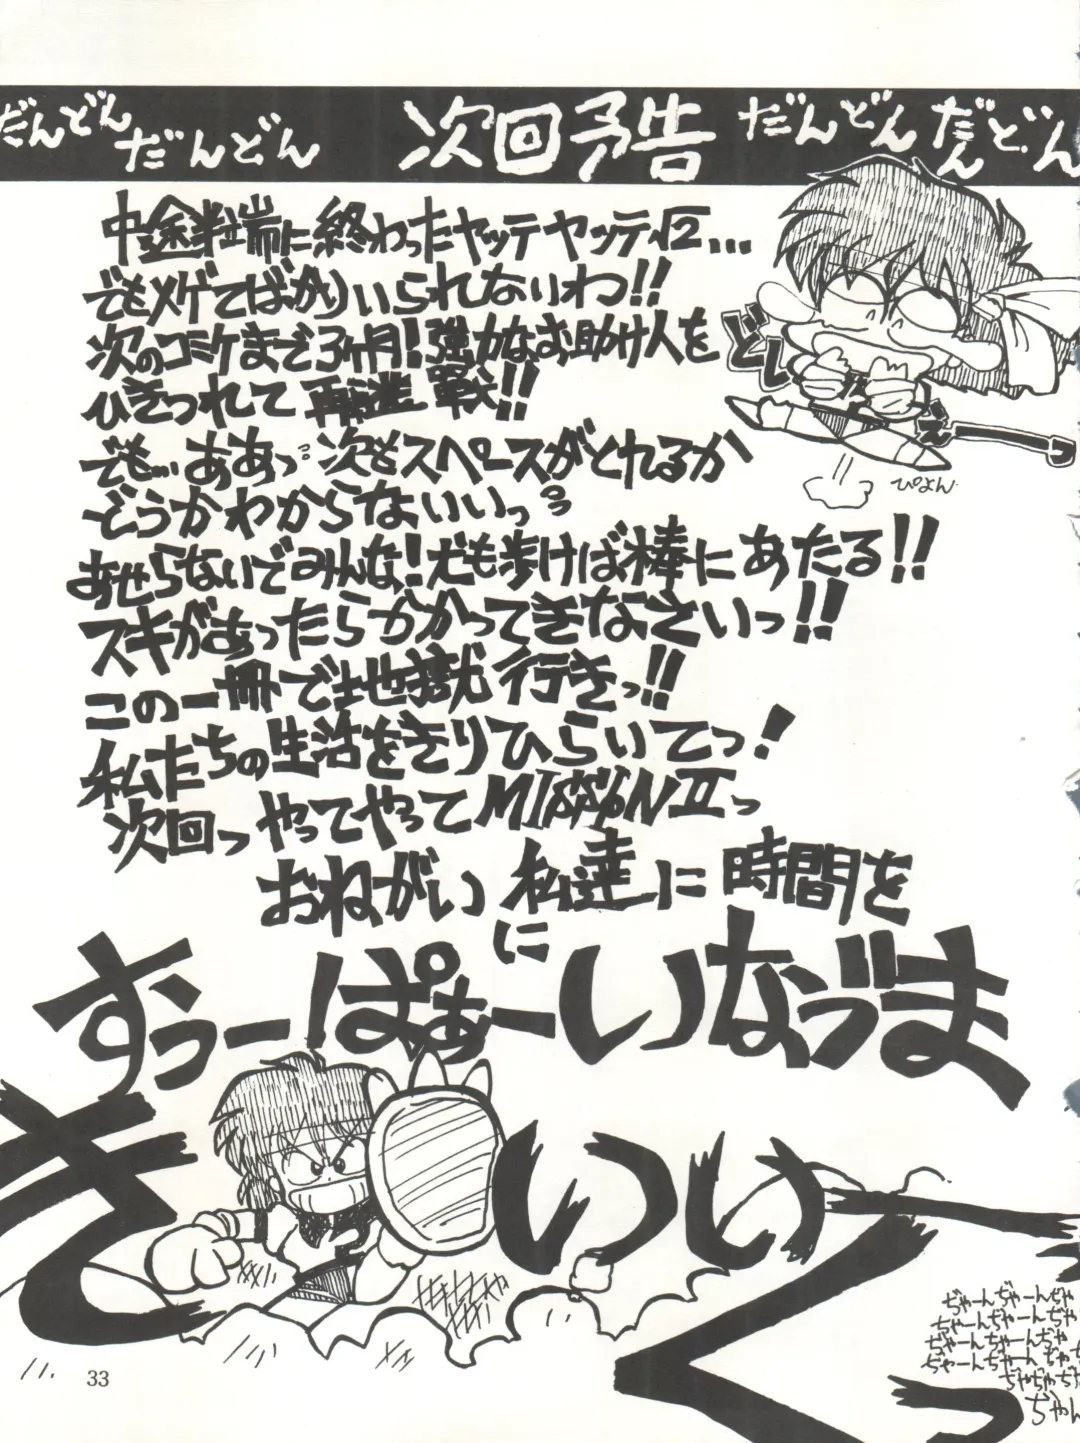 だんどん
だんどん
次回予告
だんどん
だんどん
中途半端に終わったヤッテヤッテ√2...
でもメゲてばかりいられないわ!!
次のコミケまで3ヶ月!強力なお助け人を
ひきつれて再挑戦!!
でも...ああっ次もスペースがとれるか
どうかわからないいっ
あせらないでみんな!犬も歩けば棒にあたる!!
スキがあったらかかってきなさいっ!!
この一冊で地獄行きっ!!
私たちの生活をきりひらいてっ!
次回っやってやってMISSION Ⅱっ
おねがい私達に時間を
に
すっーぱぁーいなづま
きいいーくっ
ぴょん
ぢゃーんぢゃーんぢゃ
ぢゃーんぢゃーんぢゃ
ぢゃーんぢゃーんぢゃ
ぢゃーんぢゃーん
33